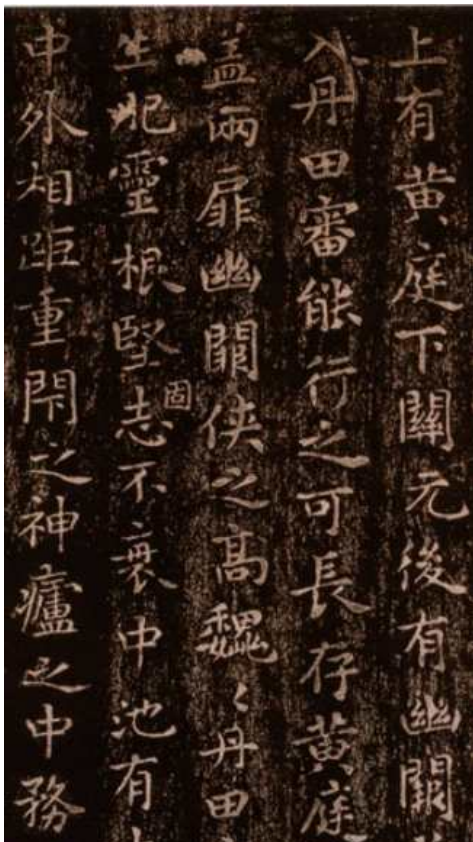 上有黄庭下關元後有幽闕
入丹田審能行之可長存黄庭
盖兩扉幽關侠之高魏〻丹田
生肥靈根堅志不衰中池有
固
中外相距重閇之神廬之中務